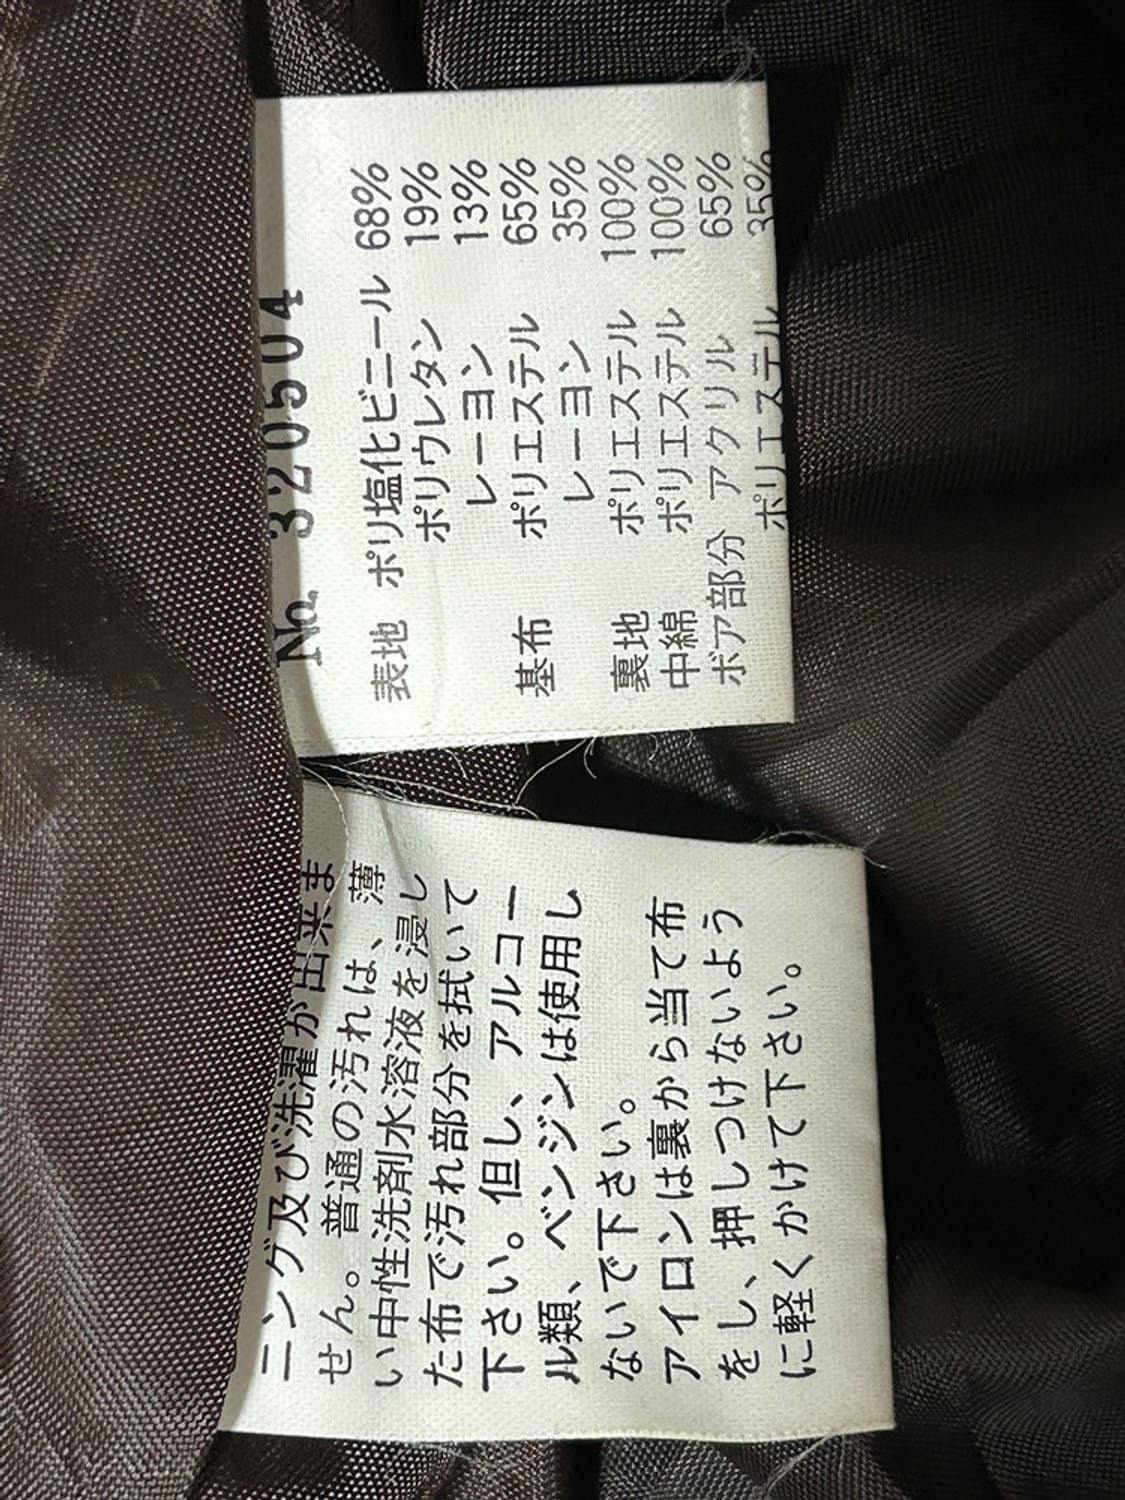 No. 320504
表地 ポリ塩化ビニール 68%
ポリウレタン 19%
レーヨン 13%
基布 ポリエステル 65%
レーヨン 35%
裏地 ポリエステル 100%
中綿 ポリエステル 100%
ボア部分 アクリル 65%
ポリエステル 35%
ニング及び洗濯が出来ま
せん。普通の汚れは、薄
い中性洗剤水溶液を浸し
た布で汚れ部分を拭いて
下さい。但し、アルコー
ル類、ベンジンは使用し
ないで下さい。
アイロンは裏から当て布
をし、押しつけないよう
に軽くかけて下さい。